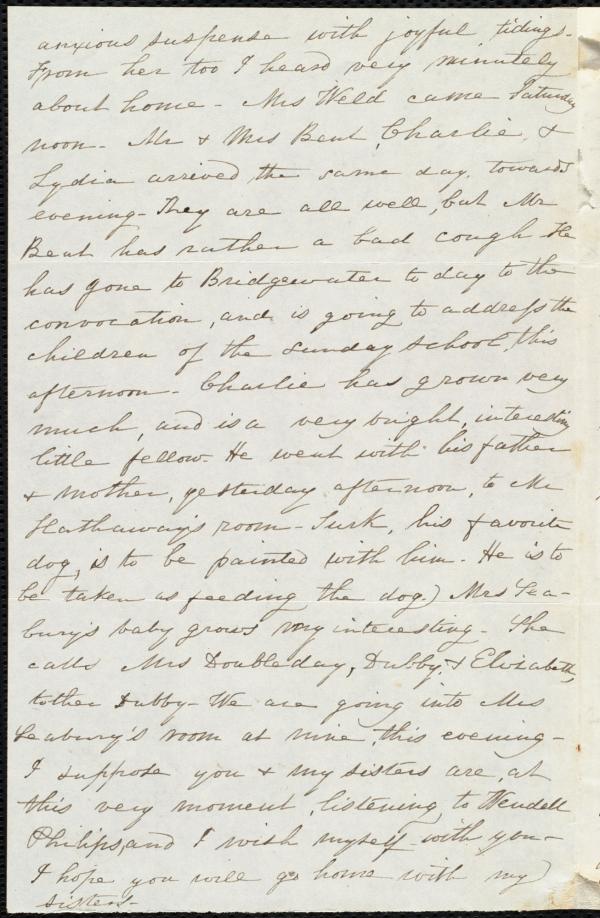 anxious suspense with joyful tidings.
From her too I heard very minutely
about home - Mrs Weld came Saturday
noon - Mr & Mrs Bent, Charlie, &
Lydia arrived the same day, towards
evening - They are all well, but Mr
Bent has rather a bad cough He
has gone to Bridgewater to day to the
convocation, and is going to address the
children of the Sunday school, this
afternoon - Charlie has grown very
much, and is a very bright, interesting
little fellow. He went with his father
& mother, yesterday afternoon, to Mr
Hathaway's room - Turk, his favorite
dog, is to be painted with him. He is to
be taken as feeding the dog.) Mrs Sea-
bury's baby grows very interesting - She
calls Mrs Doubleday, Dubby, & Elizabeth,
tother Dubby - We are going into Mrs
Seabury's room at nine, this evening -
I suppose you & my sisters are, at
this very moment, listening to Wendell
Philips, and I wish myself with you -
I hope you will go home with my
sisters -